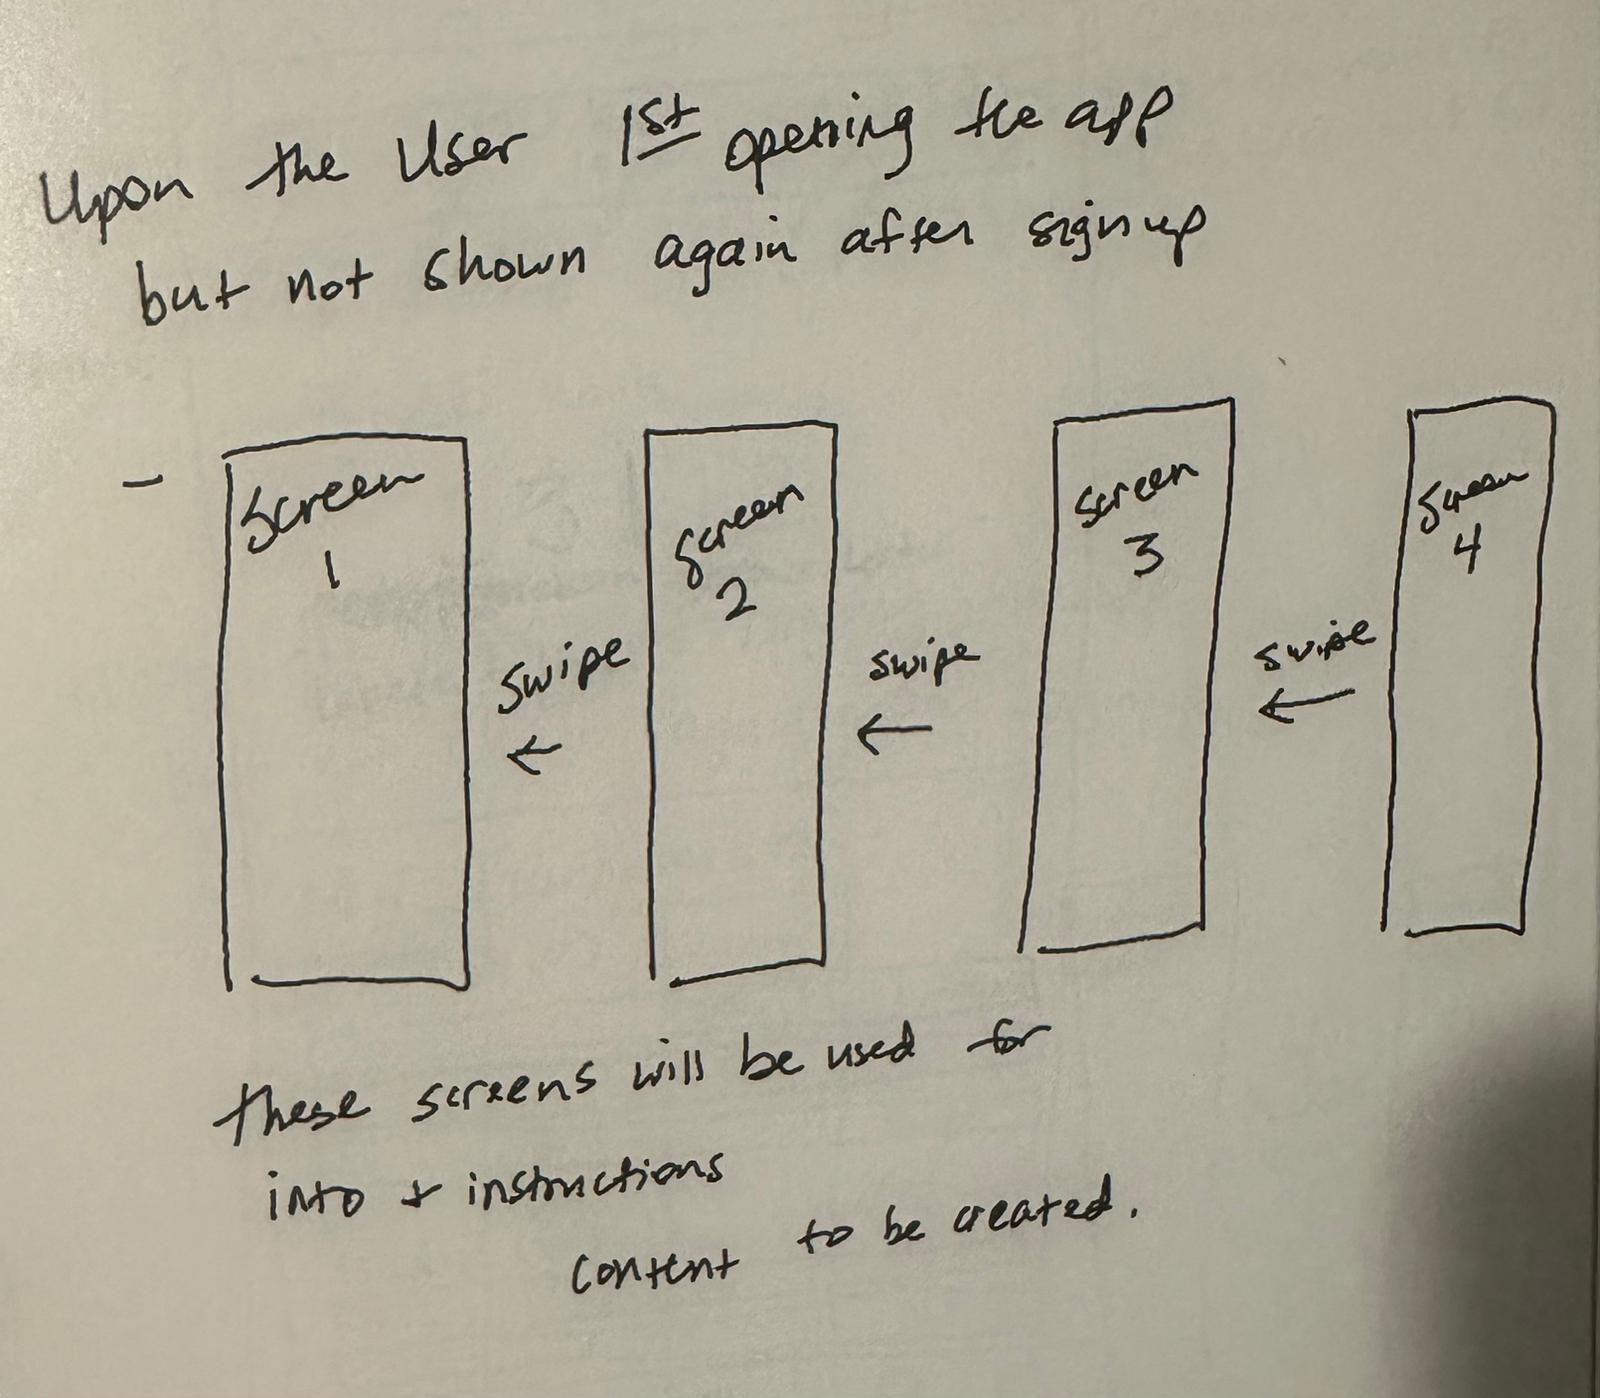 Upon the User 1st opening the app
but not shown again after signup
Screen
1
Screen
2
Screen
3
Screen
4
swipe
swipe
swipe
these screens will be used for
into + instructions
content to be created.